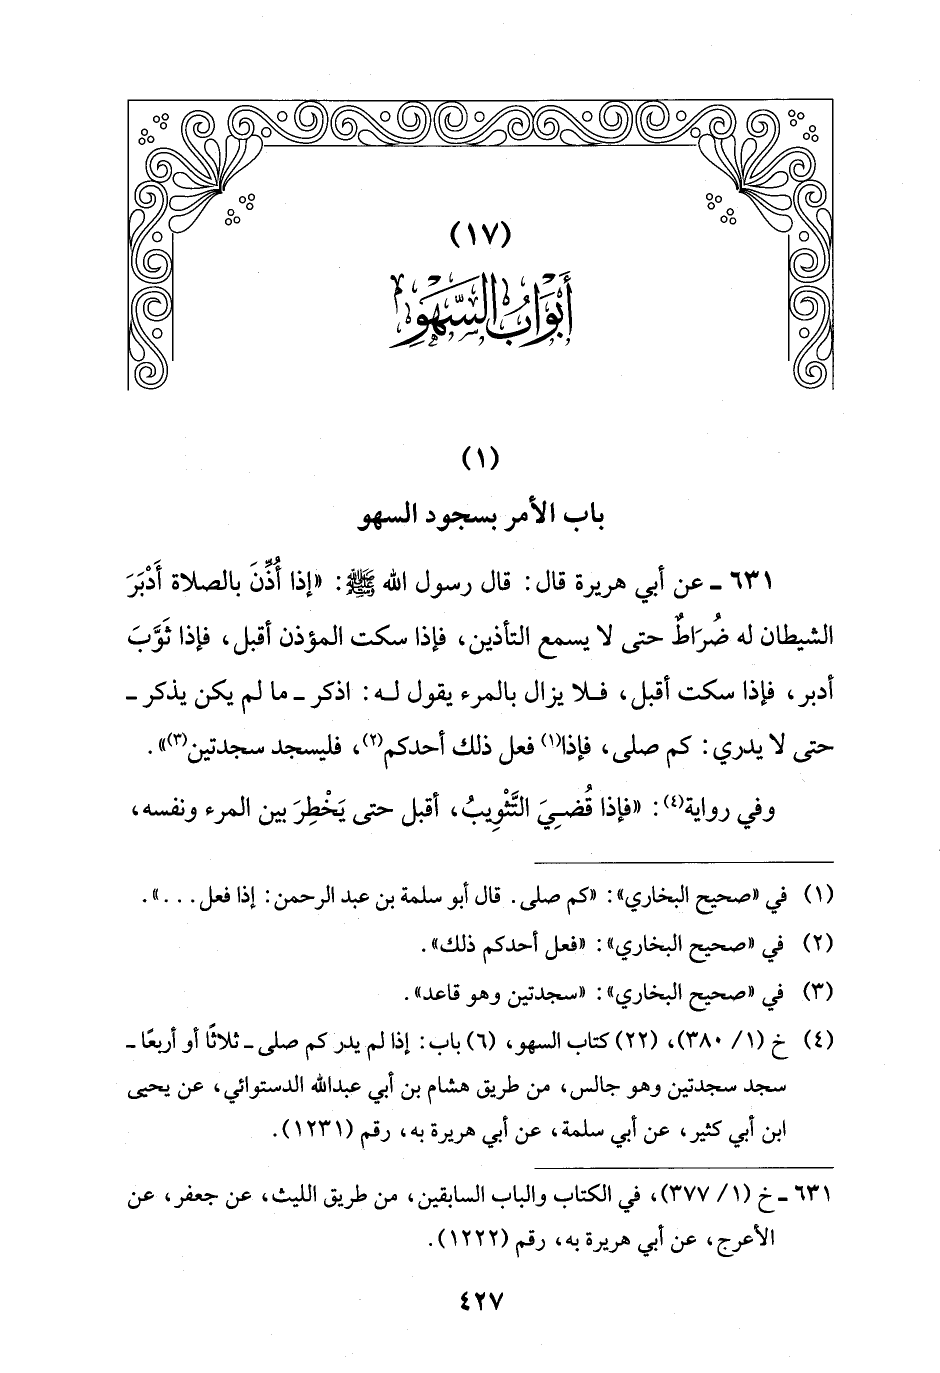 (١٧)
أَبْوَابُ السَّهْوِ
(١)
باب الأمر بسجود السهو
٦٣١ ـ عن أبي هريرة قال: قال رسول الله ﷺ: «إذا أُذِّنَ بالصلاة أَدْبَرَ
الشيطان له ضُرَاطٌ حتى لا يسمع التأذين، فإذا سكت المؤذن أقبل، فإذا ثَوَّبَ
أدبر، فإذا سكت أقبل، فلا يزال بالمرء يقول له: اذكر ـ ما لم يكن يذكر ـ
حتى لا يدري: كم صلى، فإذا(١) فعل ذلك أحدكم(٢)، فليسجد سجدتين(٣)».
وفي رواية(٤): «فإذا قُضِيَ التَّثْوِيبُ، أقبل حتى يَخْطِرَ بين المرء ونفسه،
(١) في «صحيح البخاري»: «كم صلى. قال أبو سلمة بن عبد الرحمن: إذا فعل...».
(٢) في «صحيح البخاري»: «فعل أحدكم ذلك».
(٣) في «صحيح البخاري»: «سجدتين وهو قاعد».
(٤) خ (١/ ٣٨٠)، (٢٢) كتاب السهو، (٦) باب: إذا لم يدر كم صلى ـ ثلاثًا أو أربعًا ـ
سجد سجدتين وهو جالس، من طريق هشام بن أبي عبدالله الدستوائي، عن يحيى
ابن أبي كثير، عن أبي سلمة، عن أبي هريرة به، رقم (١٢٣١).
٦٣١ ـ خ (١/ ٣٧٧)، في الكتاب والباب السابقين، من طريق الليث، عن جعفر، عن
الأعرج، عن أبي هريرة به، رقم (١٢٢٢).
٤٢٧